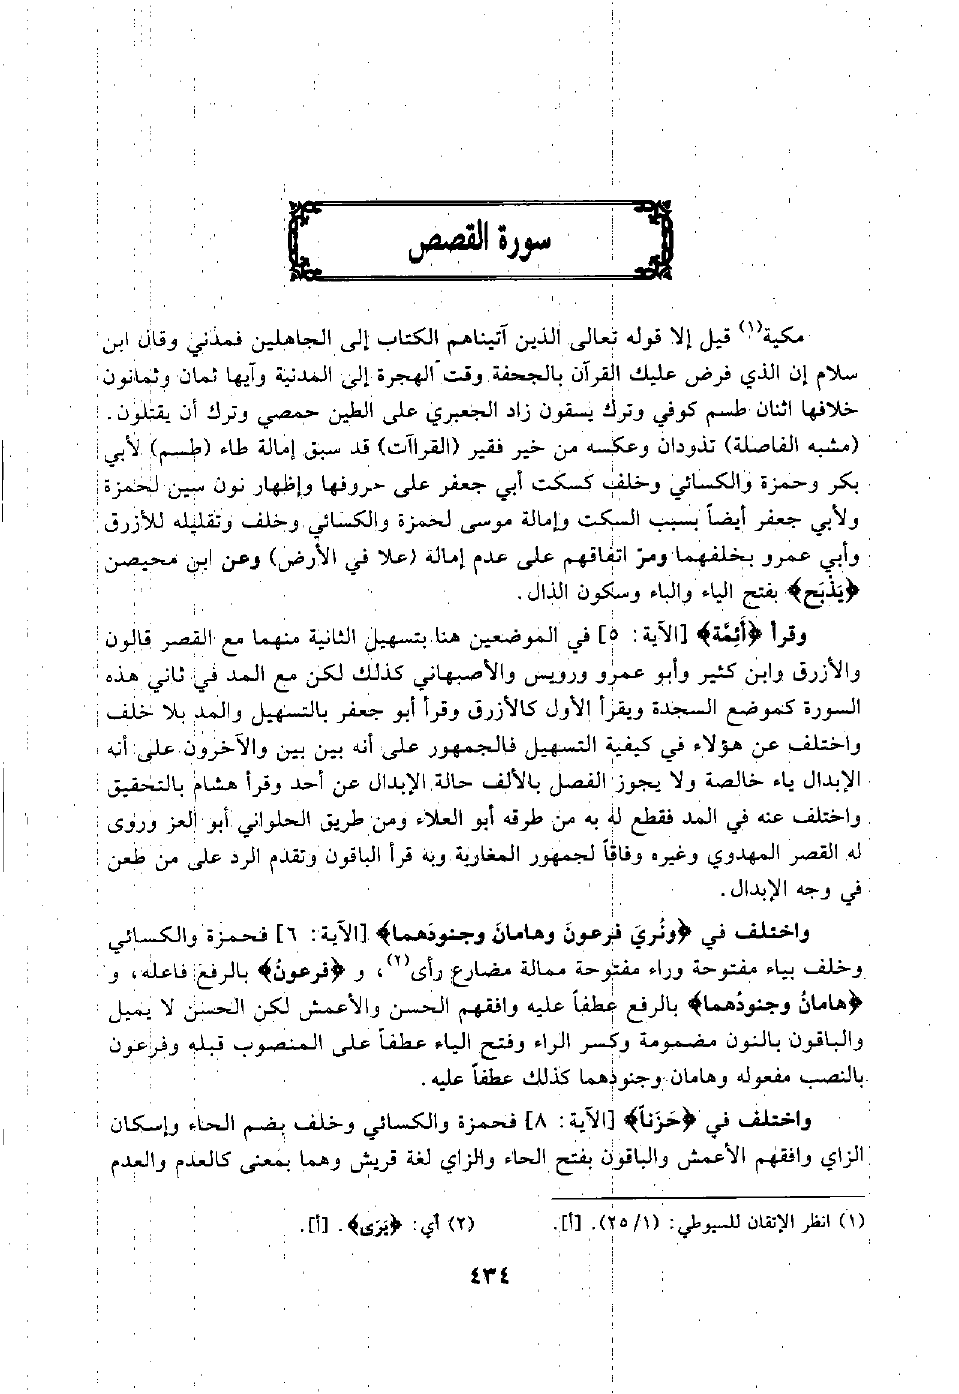 سورة القصص
مكية(١) قيل إلا قوله تعالى الذين آتيناهم الكتاب إلى الجاهلين فمدني وقال ابن
سلام إن الذي فرض عليك القرآن بالجحفة وقت الهجرة إلى المدنية وآيها ثمان وثمانون
خلافها اثنان طسم كوفي وترك يسقون زاد الجعبري على الطين حمصي وترك أن يقتلون.
(مشبه الفاصلة) تذودان وعكسه من خير فقير (القراآت) قد سبق إمالة طاء (طسم) لأبي
بكر وحمزة والكسائي وخلف كسكت أبي جعفر على حروفها وإظهار نون سين لحمزة
ولأبي جعفر أيضاً بسبب السكت وإمالة موسى لحمزة والكسائي وخلف وتقليله للأزرق
وأبي عمرو بخلفهما ومرّ اتفاقهم على عدم إمالة (علا في الأرض) وعن ابن محيصن
﴿يَذْبَح﴾ بفتح الياء والباء وسكون الذال.
وقرأ ﴿أَئِمَّة﴾ [الآية: ٥] في الموضعين هنا بتسهيل الثانية منهما مع القصر قالون
والأزرق وابن كثير وأبو عمرو ورويس والأصبهاني كذلك لكن مع المد في ثاني هذه
السورة كموضع السجدة ويقرأ الأول كالأزرق وقرأ أبو جعفر بالتسهيل والمد بلا خلف
واختلف عن هؤلاء في كيفية التسهيل فالجمهور على أنه بين بين والآخرون على أنه
الإبدال ياء خالصة ولا يجوز الفصل بالألف حالة الإبدال عن أحد وقرأ هشام بالتحقيق
واختلف عنه في المد فقطع له به من طرقه أبو العلاء ومن طريق الحلواني أبو العز وروى
له القصر المهدوي وغيره وفاقاً لجمهور المغاربة وبه قرأ الباقون وتقدم الرد على من طعن
في وجه الإبدال.
واختلف في ﴿ونُريَ فرعونَ وهامانَ وجنودَهما﴾ [الآية: ٦] فحمزة والكسائي
وخلف بياء مفتوحة وراء مفتوحة ممالة مضارع رأى(٢)، و ﴿فرعونُ﴾ بالرفع فاعله، و
﴿هامانُ وجنودُهما﴾ بالرفع عطفاً عليه وافقهم الحسن والأعمش لكن الحسن لا يميل
والباقون بالنون مضمومة وكسر الراء وفتح الياء عطفاً على المنصوب قبله وفرعون
بالنصب مفعوله وهامان وجنودهما كذلك عطفاً عليه.
واختلف في ﴿حَزَناً﴾ [الآية: ٨] فحمزة والكسائي وخلف بضم الحاء وإسكان
الزاي وافقهم الأعمش والباقون بفتح الحاء والزاي لغة قريش وهما بمعنى كالعدم والعدم
(١) انظر الإتقان للسيوطي: (١/ ٢٥). [أ].
(٢) أي: ﴿يَرَى﴾. [أ].
٤٣٤